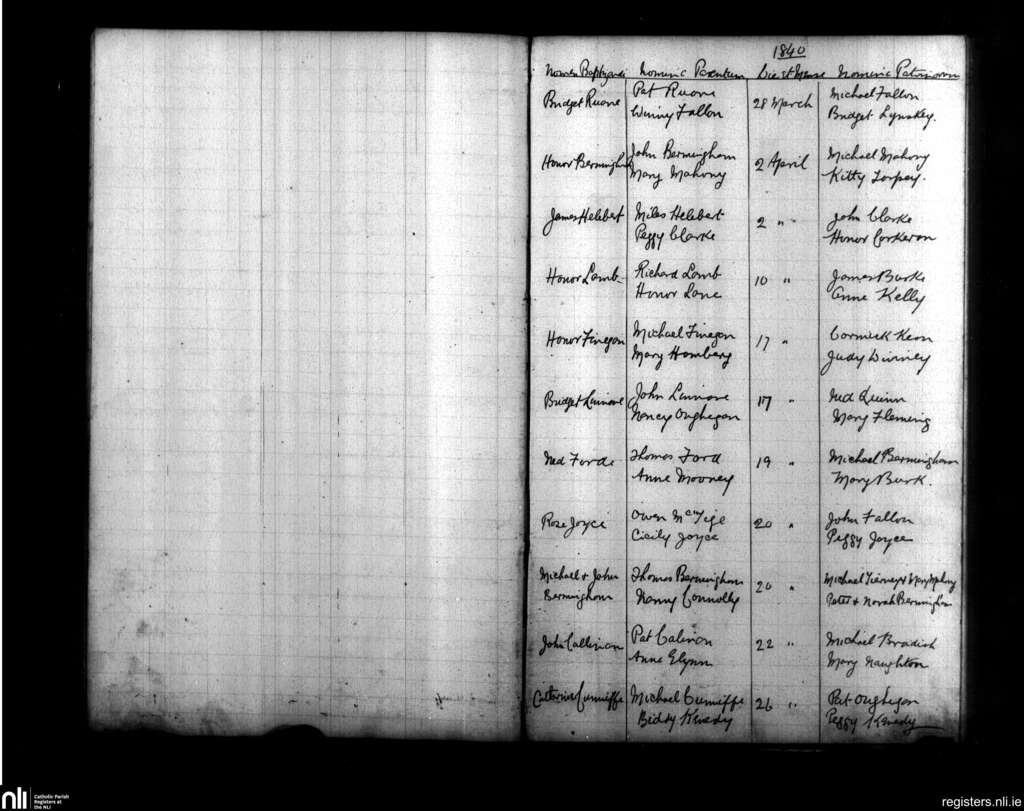 1840
Nomen Baptizandi Nomina Parentum Die et Mense Nomina Patrinorum
Bridget Ruane Pat Ruane 28 March Michael Fallon
Winny Fallon Bridget Lynskey.
Honor Bermingham John Bermingham 2 April Michael Mahony
Mary Mahony Kitty Torpey.
James Helebert Miles Helebert 2 " " John Clarke
Peggy Clarke Honor Corkeran
Honor Lamb Richard Lamb 10 " James Burke
Honor Lane Anne Kelly
Honor Finegan Michael Finegan 17 " Cormick Kean
Mary Homberg Judy
Bridget Linnane John Linnane 17 " Ned Quinn
Nancy Oughegan Mary Fleming
Ned Forde Thomas Ford 19 " Michael Bermingham
Anne Mooney Mary Burk.
Rose Joyce Owen McTige 20 " John Fallon
Cicily Joyce Peggy Joyce
Michael & John Thomas Bermingham 20 " Michael Tierney & Mary
Bermingham Nanny Connolly Peter & Norah Bermingham
John Callinan Pat Calinan 22 " Michael Bradish
Anne Glynn Mary Naughton
Catherine Cunniffe Michael Cunniffe 26 " Pat Oughegan
Biddy Kenedy Peggy Kenedy
nli Catholic Parish
Registers at
the NLI
registers.nli.ie